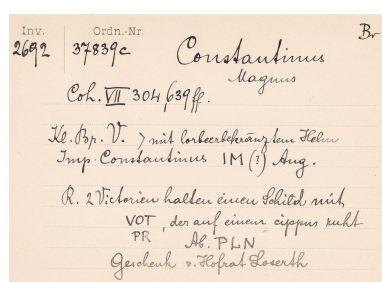 Inv. Ordn.-Nr. Br
2692 37839c Constantinus
Magnus
Coh. VII 304, 639 ff.
Kl. Bp. V. > mit lorbeerbekränztem Helm
Imp. Constantinus IM (?) Aug.
R. 2 Victorien halten einen Schild mit
VOT, der auf einem cippus ruht
PR Ab. PLN
Geschenk v. Hofrat Loserth